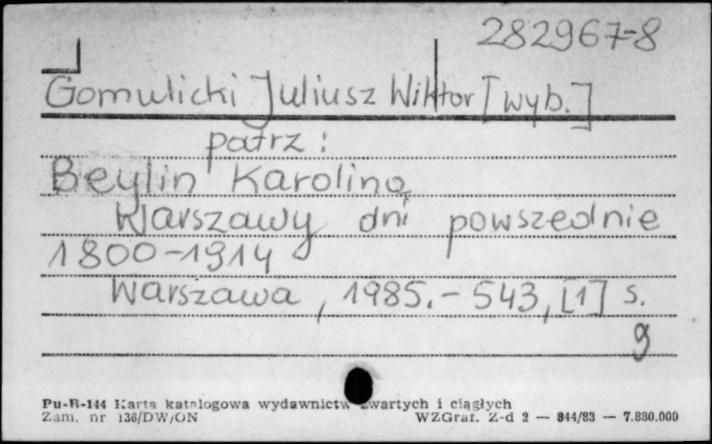 282967-8
Gomulicki Juliusz Wiktor [wyb.]
patrz:
Beylin Karolina
Warszawy dni powszednie
1800-1914
Warszawa, 1985. - 543, [1] s.
g
Pu-B-144 Karta katalogowa wydawnictw zwartych i ciągłych
Zam. nr 136/DW/ON WZGraf. Z-d 2 — 844/83 — 7.880.000